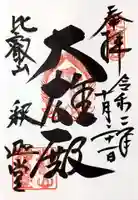 奉拝
令和二年
十月三十一日
大雄殿
比叡山
釈迦堂